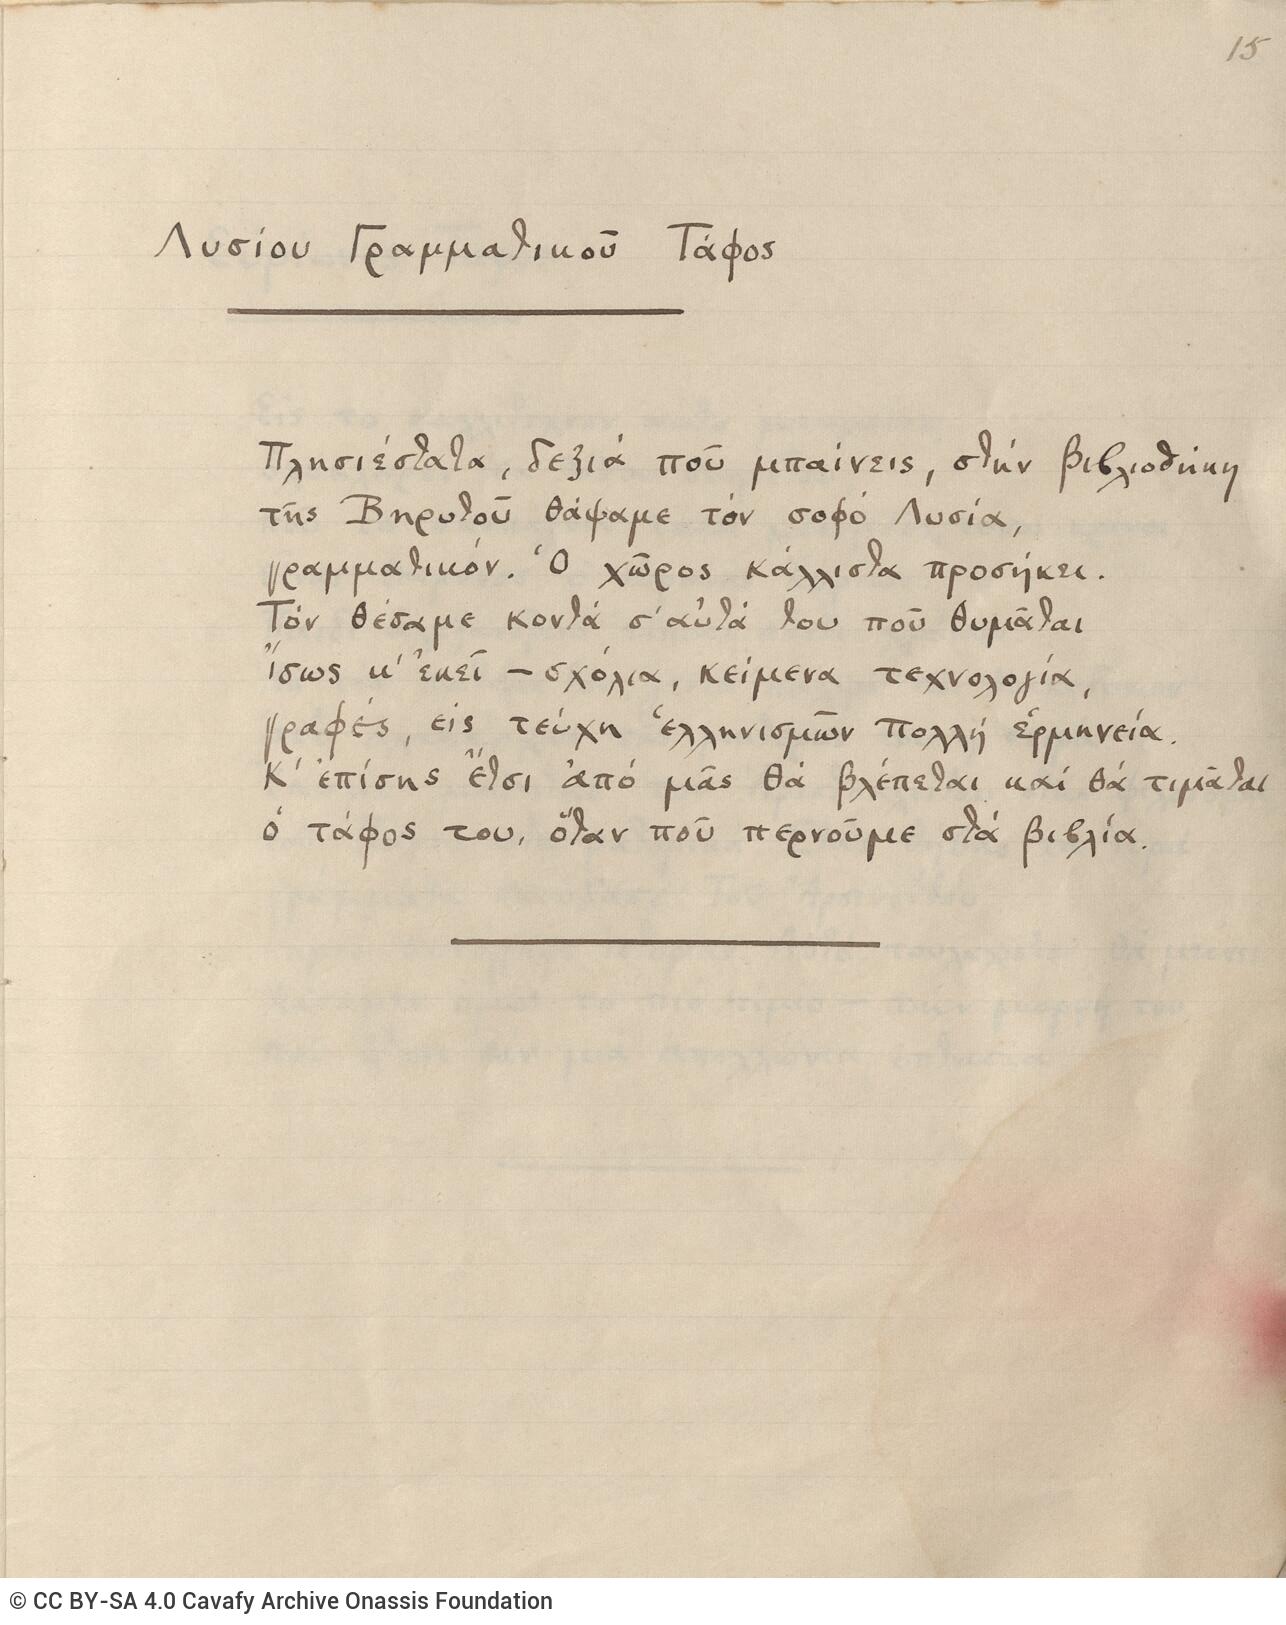 15
Λυσίου Γραμματικοῦ Τάφος
Πλησιέστατα, δεξιά ποῦ μπαίνεις, στήν βιβλιοθήκη
τῆς Βηρυτοῦ θάψαμε τόν σοφό Λυσία,
γραμματικόν. Ὁ χῶρος κάλλιστα προσήκει.
Τόν θέσαμε κοντά σ' αὐτά του ποῦ θυμᾶται
ἴσως κ' ἐκεῖ — σχόλια, κείμενα τεχνολογία,
γραφές, εἰς τεύχη ἑλληνισμῶν πολλή ἑρμηνεία.
Κ' ἐπίσης ἔτσι ἀπό μᾶς θά βλέπεται καί θά τιμᾶται
ὁ τάφος του, ὅταν ποῦ περνοῦμε στά βιβλία.
© CC BY-SA 4.0 Cavafy Archive Onassis Foundation